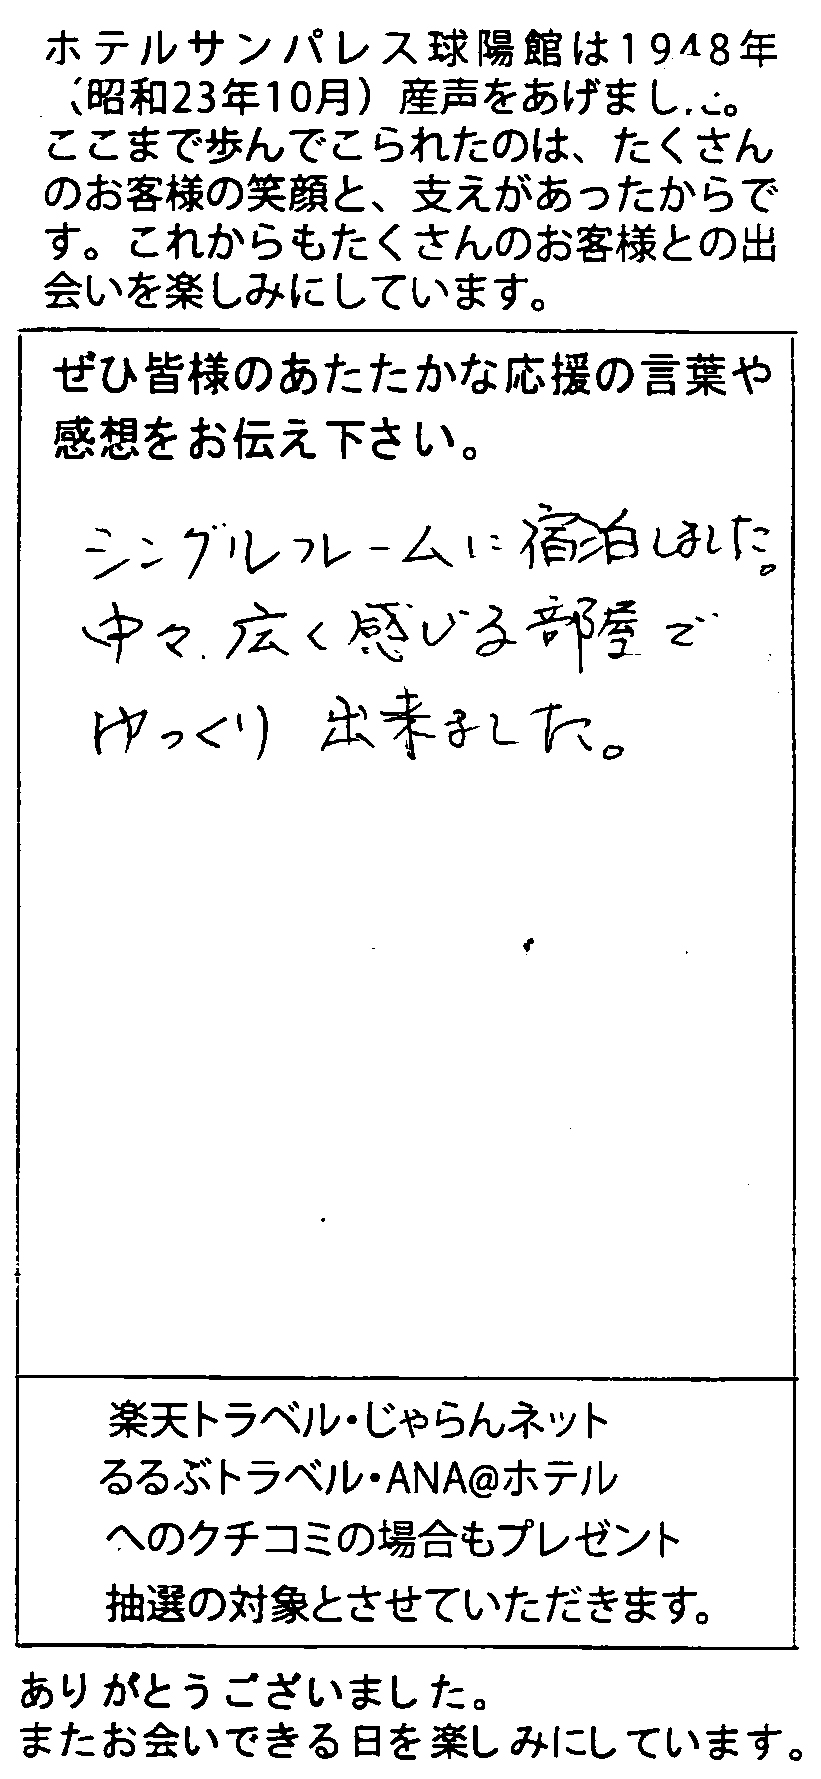 ホテルサンパレス球陽館は1948年
（昭和23年10月）産声をあげました。
ここまで歩んでこられたのは、たくさん
のお客様の笑顔と、支えがあったからで
す。これからもたくさんのお客様との出
会いを楽しみにしています。
ぜひ皆様のあたたかな応援の言葉や
感想をお伝え下さい。
シングルフレームに宿泊しました。
中々、広く感じる部屋で
ゆっくり出来ました。
楽天トラベル・じゃらんネット
るるぶトラベル・ANA@ホテル
へのクチコミの場合もプレゼント
抽選の対象とさせていただきます。
ありがとうございました。
またお会いできる日を楽しみにしています。